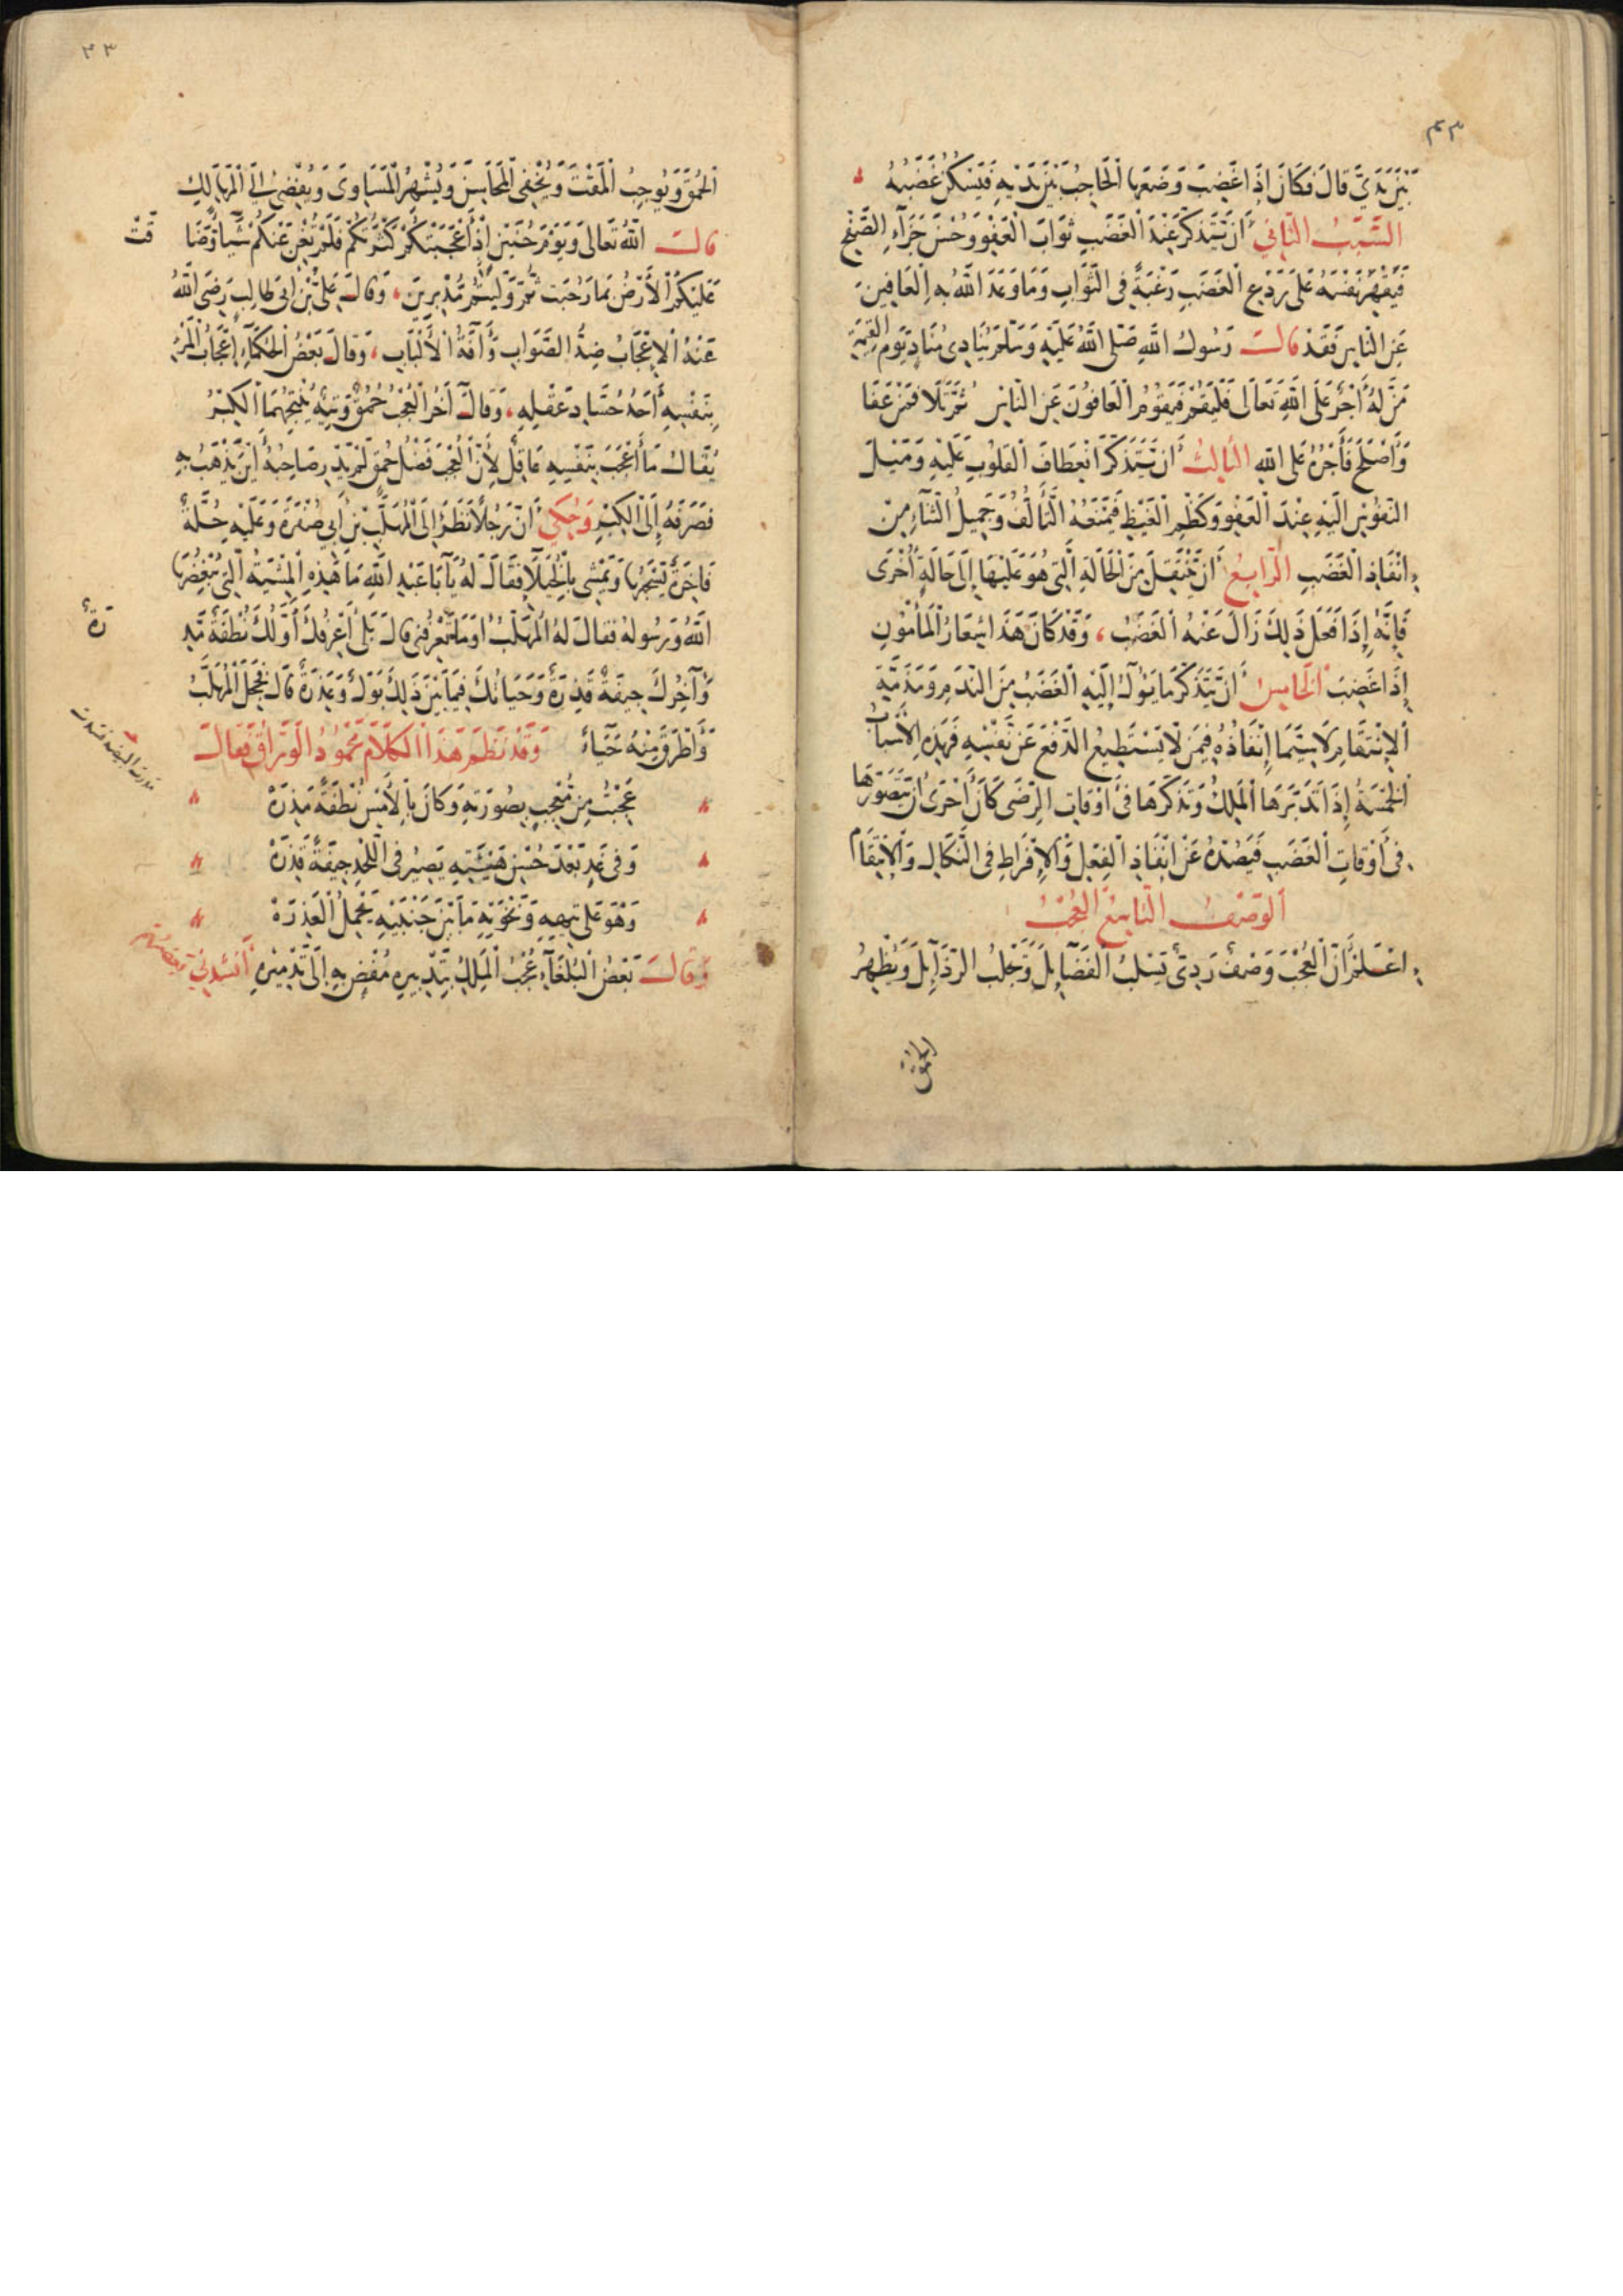 ٣٣
بَيْنَ يَدَيَّ قَالَ فَكَانَ إِذَا غَضِبَ وَضَعَهَا الْحَاجِبُ بَيْنَ يَدَيْهِ فَيَسْكُنُ غَضَبُهُ
السَّبَبُ الثَّانِي أَنْ يَتَذَكَّرَ عِنْدَ الْغَضَبِ ثَوَابَ الْعَفْوِ وَحُسْنَ جَزَآءِ الصَّفْحِ
فَيَقْهَرَ نَفْسَهُ عَلَى رَدْعِ الْغَضَبِ رَغْبَةً فِي الثَّوَابِ وَمَا وَعَدَ اللَّهُ بِهِ الْعَافِينَ
عَنِ النَّاسِ فَقَدْ قَالَ رَسُولُ اللَّهِ صَلَّى اللَّهُ عَلَيْهِ وَسَلَّمَ يُنَادِي مُنَادٍ يَوْمَ الْقِيٰمَةِ
مَنْ لَهُ أَجْرٌ عَلَى اللَّهِ تَعَالَى فَلْيَقُمْ فَيَقُومُ الْعَافُونَ عَنِ النَّاسِ ثُمَّ تَلَا فَمَنْ عَفَا
وَأَصْلَحَ فَأَجْرُهُ عَلَى اللَّهِ الثَّالِثُ أَنْ يَتَذَكَّرَ انْعِطَافَ الْقُلُوبِ عَلَيْهِ وَمَيْلَ
النُّفُوسِ إِلَيْهِ عِنْدَ الْعَفْوِ وَكَظْمِ الْغَيْظِ فَيَمْنَعَهُ التَّأَلُّفُ وَجَمِيلُ الثَّنَآءِ مِنْ
إِنْفَاذِ الْغَضَبِ الرَّابِعُ أَنْ يَنْتَقِلَ مِنَ الْحَالَةِ الَّتِي هُوَ عَلَيْهَا إِلَى حَالَةٍ أُخْرَى
فَإِنَّهُ إِذَا فَعَلَ ذَلِكَ زَالَ عَنْهُ الْغَضَبُ ، وَقَدْ كَانَ هَذَا شِعَارُ الْمَأْمُونِ
إِذَا غَضِبَ الْخَامِسُ أَنْ يَتَذَكَّرَ مَا يَؤُلُ إِلَيْهِ الْغَضَبُ مِنَ النَّدَمِ وَمَذَمَّةِ
الْإِنْتِقَامِ لَا سِيَّمَا إِنْفَاذُهُ فِيمَنْ لَا يَسْتَطِيعُ الدَّفْعَ عَنْ نَفْسِهِ فَهَذِهِ الْأَسْبَابُ
الْخَمْسَةُ إِذَا تَدَبَّرَهَا الْمَلِكُ وَتَذَكَّرَهَا فِي أَوْقَاتِ الرِّضَى كَانَ أَحْرَى أَنْ يَتَصَوَّرَهَا
فِي أَوْقَاتِ الْغَضَبِ فَيَصُدُّهُ عَنْ إِنْفَاذِ الْفِعْلِ وَالْإِفْرَاطِ فِي النَّكَالِ وَالْإِنْتِقَامِ
الْوَصْفُ التَّاسِعُ الْعُجْبُ
اعْلَمْ أَنَّ الْعُجْبَ وَصْفٌ رَدِئٌ يَسْلُبُ الْفَضَآئِلَ وَيَجْلِبُ الرَّذَآئِلَ وَيُظْهِرُ
الحمق
٣٣
الْحُمْقَ وَيُوجِبُ الْمَقْتَ وَيُخْفِي الْمَحَاسِنَ وَيُشْهِرُ الْمَسَاوِىَ وَيُفْضِي إِلَى الْمَهَالِكِ
قَالَ اللَّهُ تَعَالَى وَيَوْمَ حُنَيْنٍ إِذْ أَعْجَبَتْكُمْ كَثْرَتُكُمْ فَلَمْ تُغْنِ عَنْكُمْ شَيْأً وَضَا قَتْ
عَلَيْكُمُ الْأَرْضُ بِمَا رَحُبَتْ ثُمَّ وَلَّيْتُمْ مُدْبِرِينَ ، وَقَالَ عَلِيُّ بْنُ أَبِي طَالِبٍ رَضِيَ اللَّهُ
عَنْهُ الْإِعْجَابُ ضِدُّ الصَّوَابِ وَآفَةُ الْأَلْبَابِ ، وَقَالَ بَعْضُ الْحُكَمَآءِ إِعْجَابُ الْمَرْءِ
بِنَفْسِهِ أَحَدُ حُسَّادِ عَقْلِهِ ، وَقَالَ آخَرُ الْعُجْبُ حُمْقٌ وَتِيهٌ يُنْتِجُهُمَا الْكِبْرُ
يُقَالُ مَا أُعْجِبَ بِنَفْسِهِ عَاقِلٌ لِأَنَّ الْعُجْبَ فَضْلُ حُمْقٍ لَمْ يَدْرِ صَاحِبُهُ أَيْنَ يَذْهَبُ بِهِ
فَصَرَفَهُ إِلَى الْكِبْرِ وَحُكِيَ أَنَّ رَجُلًا نَظَرَ إِلَى الْمُهَلَّبِ بْنِ أَبِي صُفْرَةَ وَعَلَيْهِ حُلَّةٌ
فَاخِرَةٌ يَسْحَبُهَا وَيَمْشِي بِالْخُيَلَآ فَقَالَ لَهُ يَآ أَبَا عَبْدِ اللَّهِ مَا هَذِهِ الْمِشْيَةُ الَّتِي يُبْغِضُهَا
اللَّهُ وَرَسُولُهُ فَقَالَ لَهُ الْمُهَلَّبُ أَوَمَا تَعْرِفُنِي قَالَ بَلَى أَعْرِفُكَ أَوَّلُكَ نُطْفَةٌ مَذِ رَةٌ
وَآخِرُكَ جِيفَةٌ قَذِرَةٌ وَحَيَاتُكَ فِيمَا بَيْنَ ذَلِكَ بَوْلٌ وَعَذِرَةٌ قَالَ فَخَجِلَ الْمُهَلَّبُ
وَأَطْرَقَ مِنْهُ حَيَآءً وَقَدْ نَظَمَ هَذَا الْكَلَامَ مَحْمُودٌ الْوَرَّاقُ فَقَالَ
مذرت البيضة فسدت
عَجِبْتُ مِنْ مُعْجَبٍ بِصُورَتِهِ وَكَانَ بِالْأَمْسِ نُطْفَةً مَذِرَهْ
وَفِي غَدٍ بَعْدَ حُسْنِ هَيْئَتِهِ يَصِيرُ فِي اللَّحْدِ جِيفَةً قَذِرَهْ
وَهْوَ عَلَى تِيهِهِ وَنَخْوَتِهِ مَا بَيْنَ جَنْبَيْهِ يَحْمِلُ الْعَذِرَهْ
وَقَالَ بَعْضُ الْبُلَغَآءِ عُجْبُ الْمَلِكِ بِتَدْبِيرِهِ مُفْضٍ بِهِ إِلَى تَدْمِيرِهِ أَنْشَدَنِي بعضهم